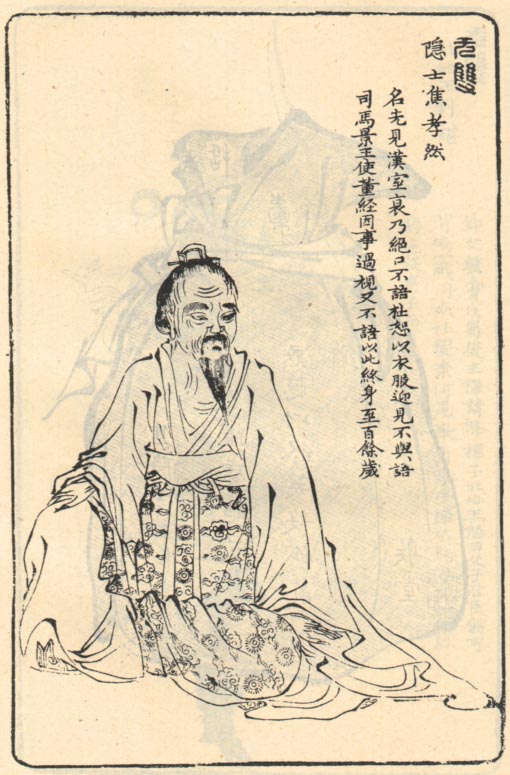 无雙
隐士焦孝然
名先見漢室衰乃絕口不語杜恕以衣服迎見不與語
司馬景王使董經因事過視又不語以此終身至百餘歲